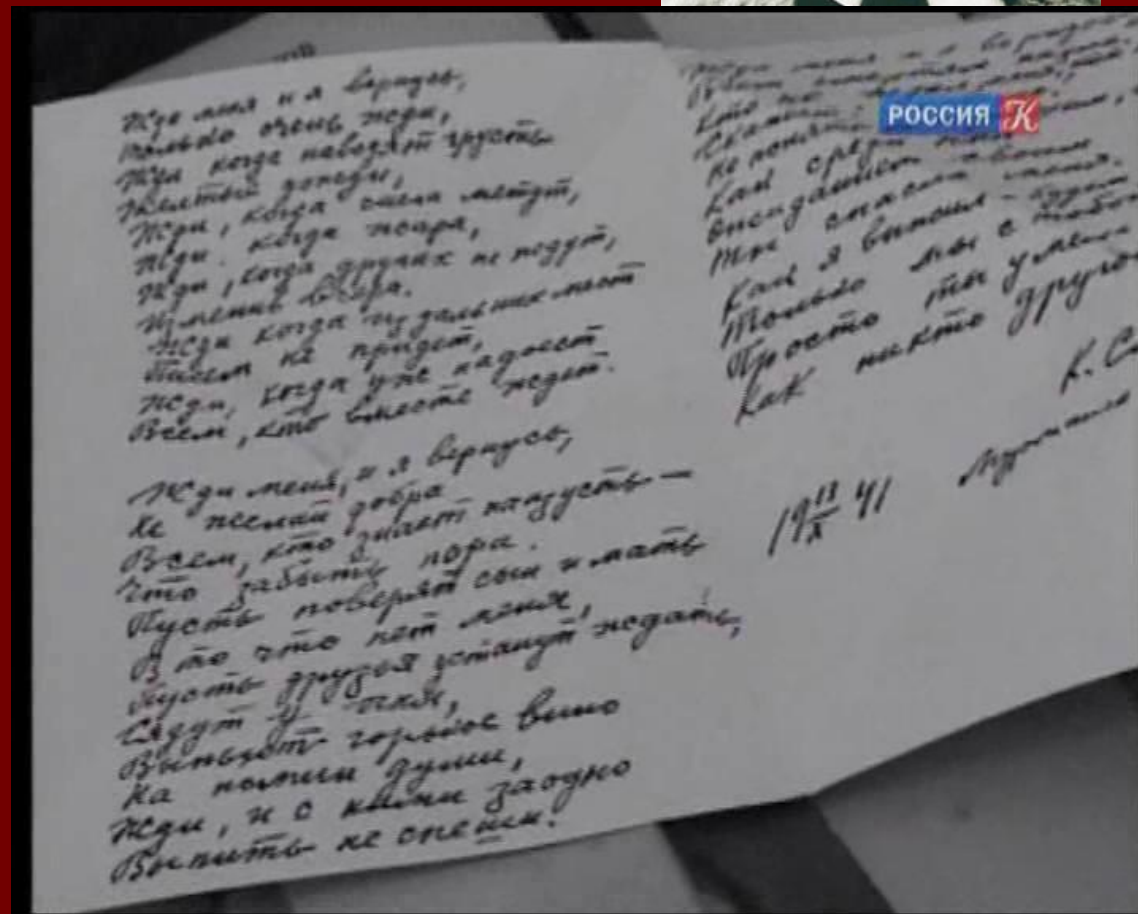 Жди меня и я вернусь,
Только очень жди,
Жди когда наводят грусть
Желтые дожди,
Жди, когда снега метут,
Жди. когда жара,
Жди, когда других не ждут,
Изменив вчера.
Жди когда из дальних мест
Писем не придет,
Жди, когда уже надоест
Всем, кто вместе ждет.
Жди меня, и я вернусь,
Не желай добра
Всем, кто знает наизусть —
Что забыть пора.
Пусть поверят сын и мать
В то что нет меня,
Пусть друзья устанут ждать,
Сядут у огня,
Выпьют горькое вино
На помин души,
Жди, и с ними заодно
Выпить не спеши.
Жди меня и я вернусь
Всем смертям
Кто не меня,
Не понять
Как среди
Ожиданием своим
Ты спасла меня.
Как я выжил - будем
Только мы с тобой
Просто ты умела
Как никто другой
К. С
19 13/X 41
РОССИЯ К